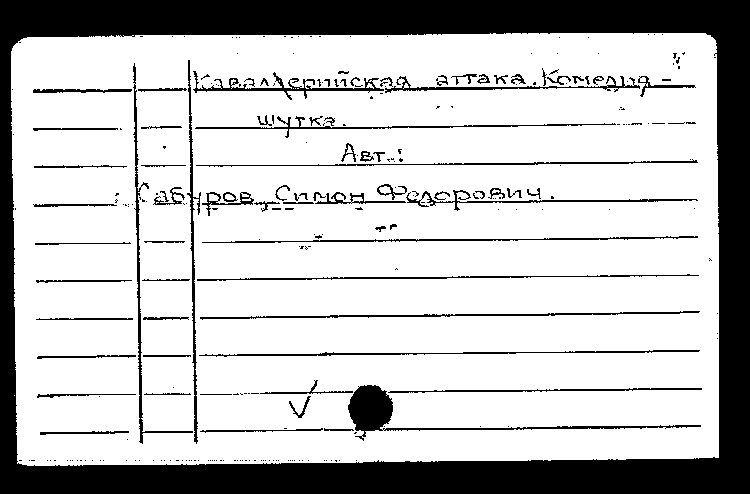 Кавалерийская аттака. Комедия -
шутка.
Авт.:
Сабуров, Симон Федорович.